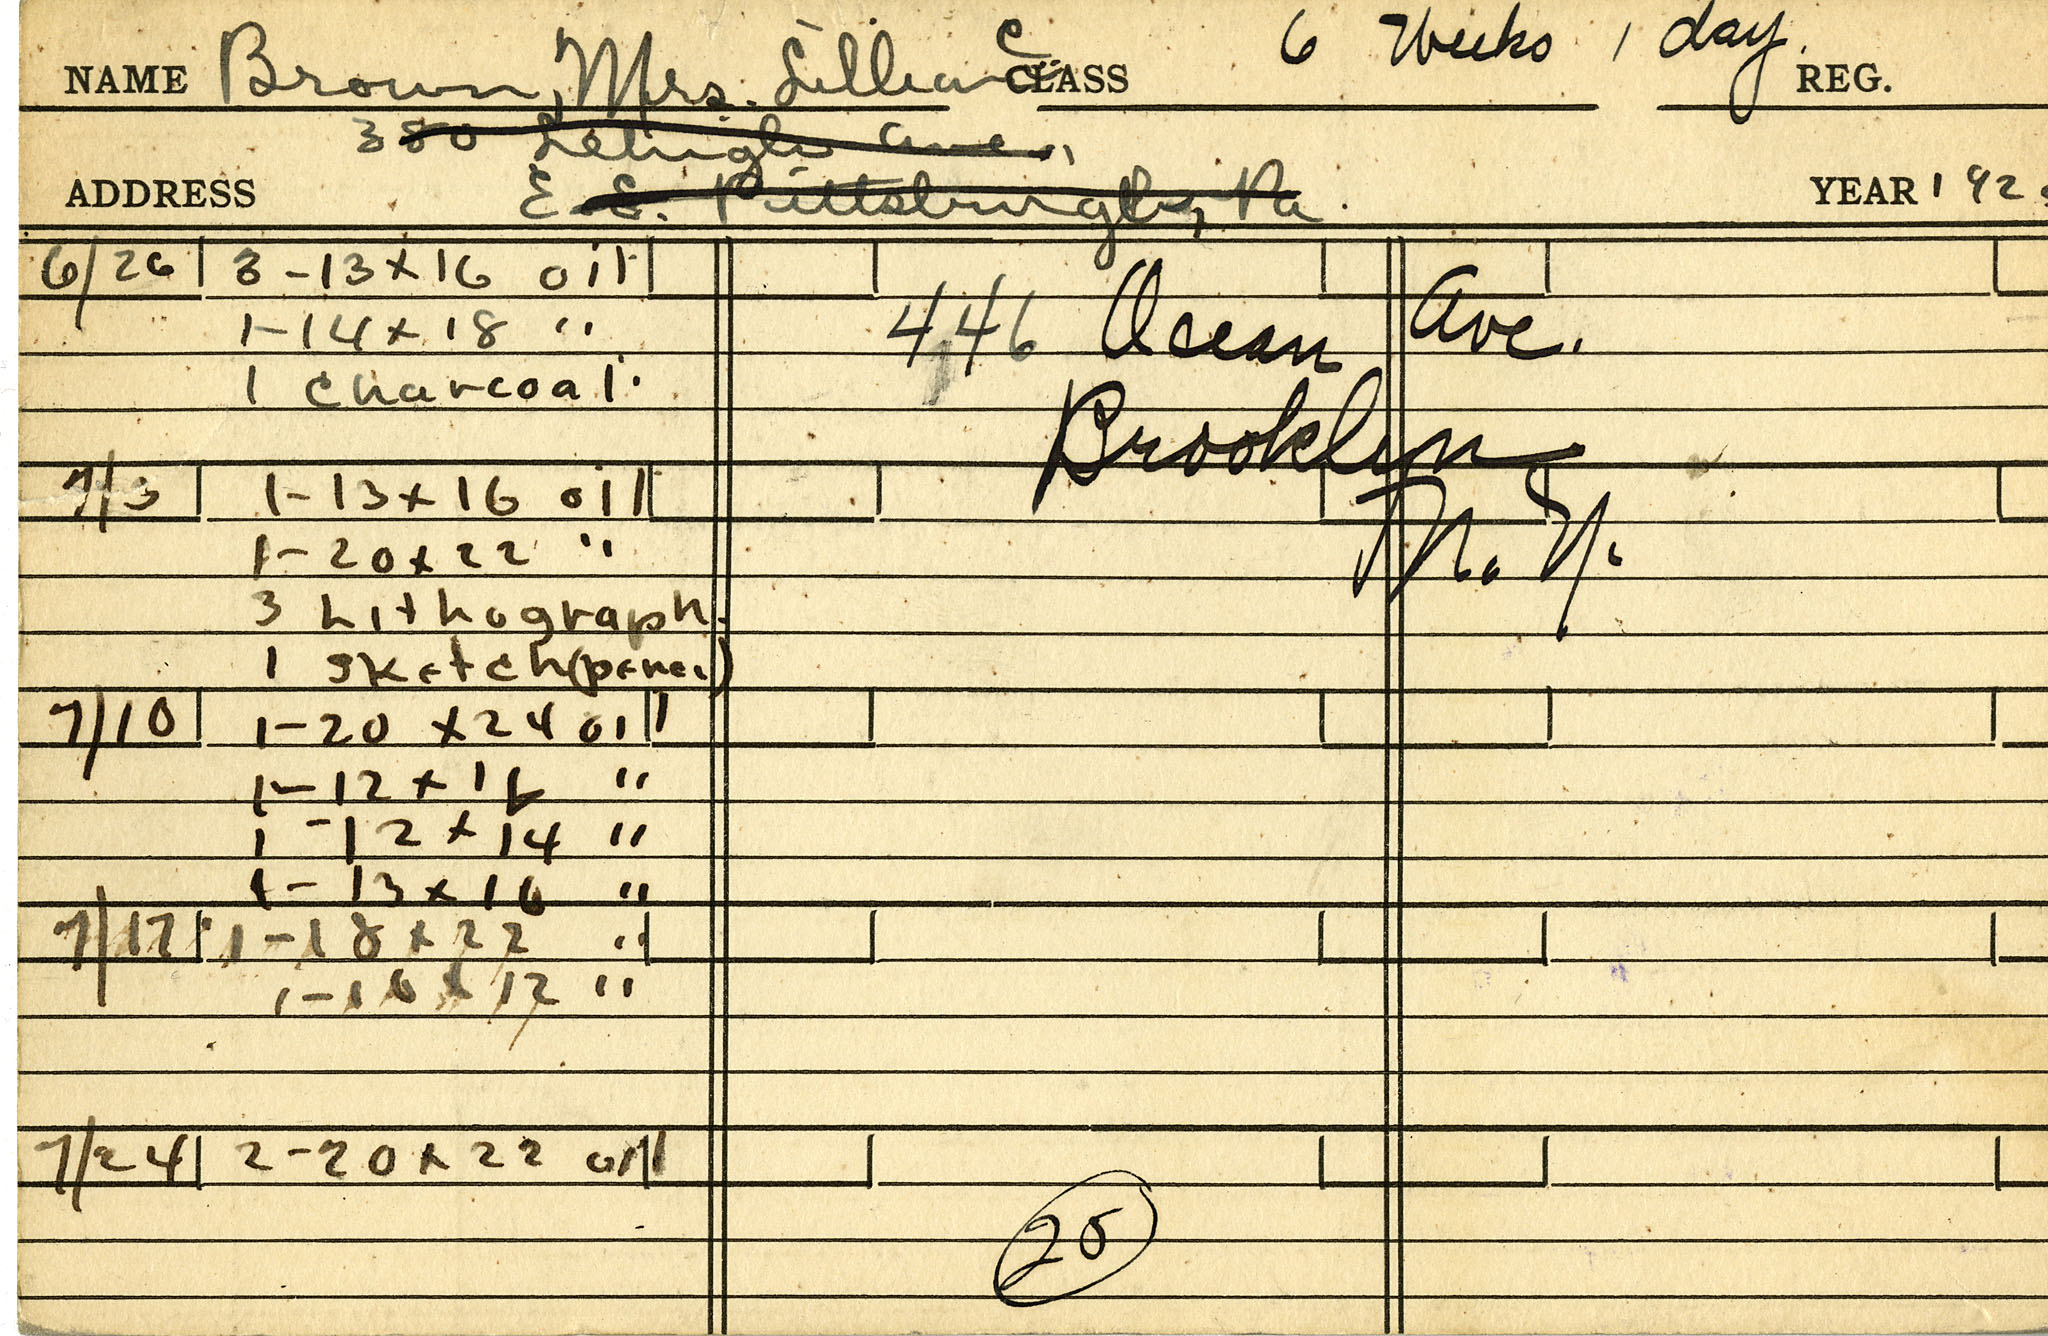 NAME Brown, Mrs. Lillian C. CLASS 6 Weeks 1 day. REG.
380 Lehigh Ave.,
ADDRESS E. E. Pittsburgh, Pa. YEAR 192
6/26 3-13x16 oil
1-14x18 "
1 charcoal.
446 Ocean Ave.
Brooklyn
N.Y.
7/3 1-13x16 oil
1-20x22 "
3 Lithograph.
1 sketch (pencil)
7/10 1-20x24 oil
1-12x16 "
1-12x14 "
1-13x16 "
7/17 1-18x22 "
1-16x12 "
7/24 2-20x22 oil
25